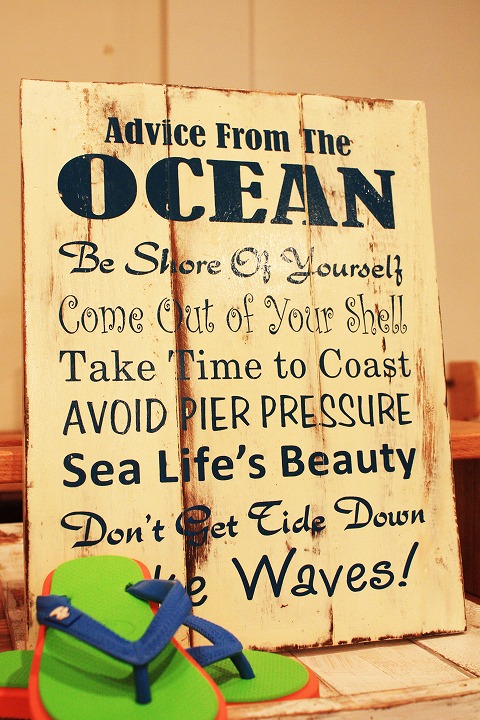 Advice From The
OCEAN
Be Shore Of Yourself
Come Out of Your Shell
Take Time to Coast
AVOID PIER PRESSURE
Sea Life's Beauty
Don't Get Tide Down
Waves!